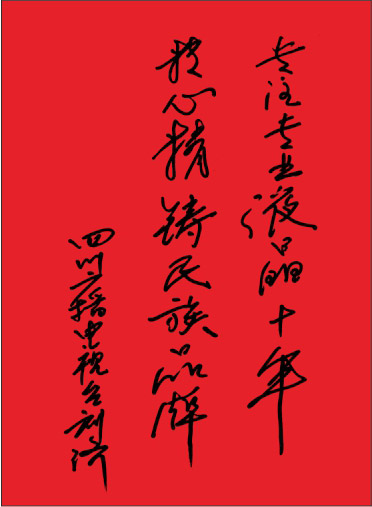 专注专业液晶十年
心精铸民族品牌
四川广播电视台刘